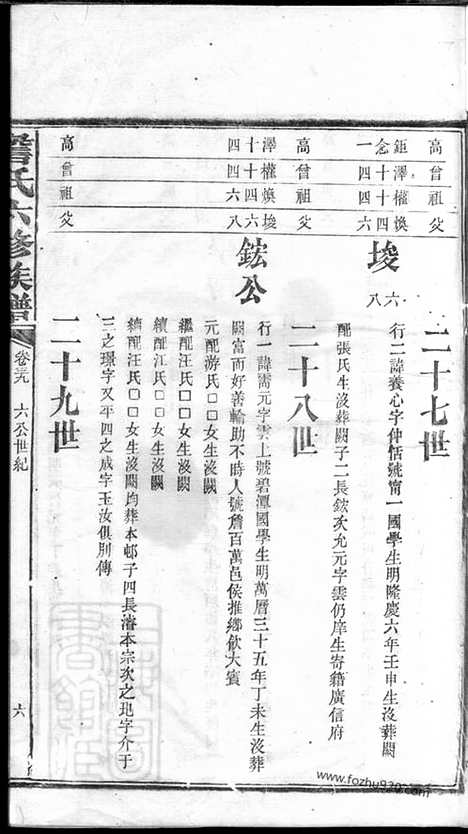 二十七世
高曾祖父
鉅念一
澤十四
權十四
煥四
埈六八
行二諱養心字仲恬號甯一國學生明隆慶六年壬申生沒葬闕
配張氏生沒葬闕子二長鋐次允元字雲仍庠生寄籍廣信府
二十八世
高曾祖父
澤十四
權十四
煥四六
埈六八
鋐公
行一諱需元字雲上號碧潭國學生明萬曆三十五年丁未生沒葬
闕富而好善輸助不時人號詹百萬邑侯推鄉飲大賓
元配游氏□□女生沒闕
繼配汪氏□□女生沒闕
續配汪氏□□女生沒闕
續配汪氏□□女生沒闕均葬本邨子四長濬本宗次之玘字介于
三之璟字又平四之珹字玉汝俱別傳
二十九世
詹氏六修族譜
卷三九 六公世紀
六
www.fozhu920.com